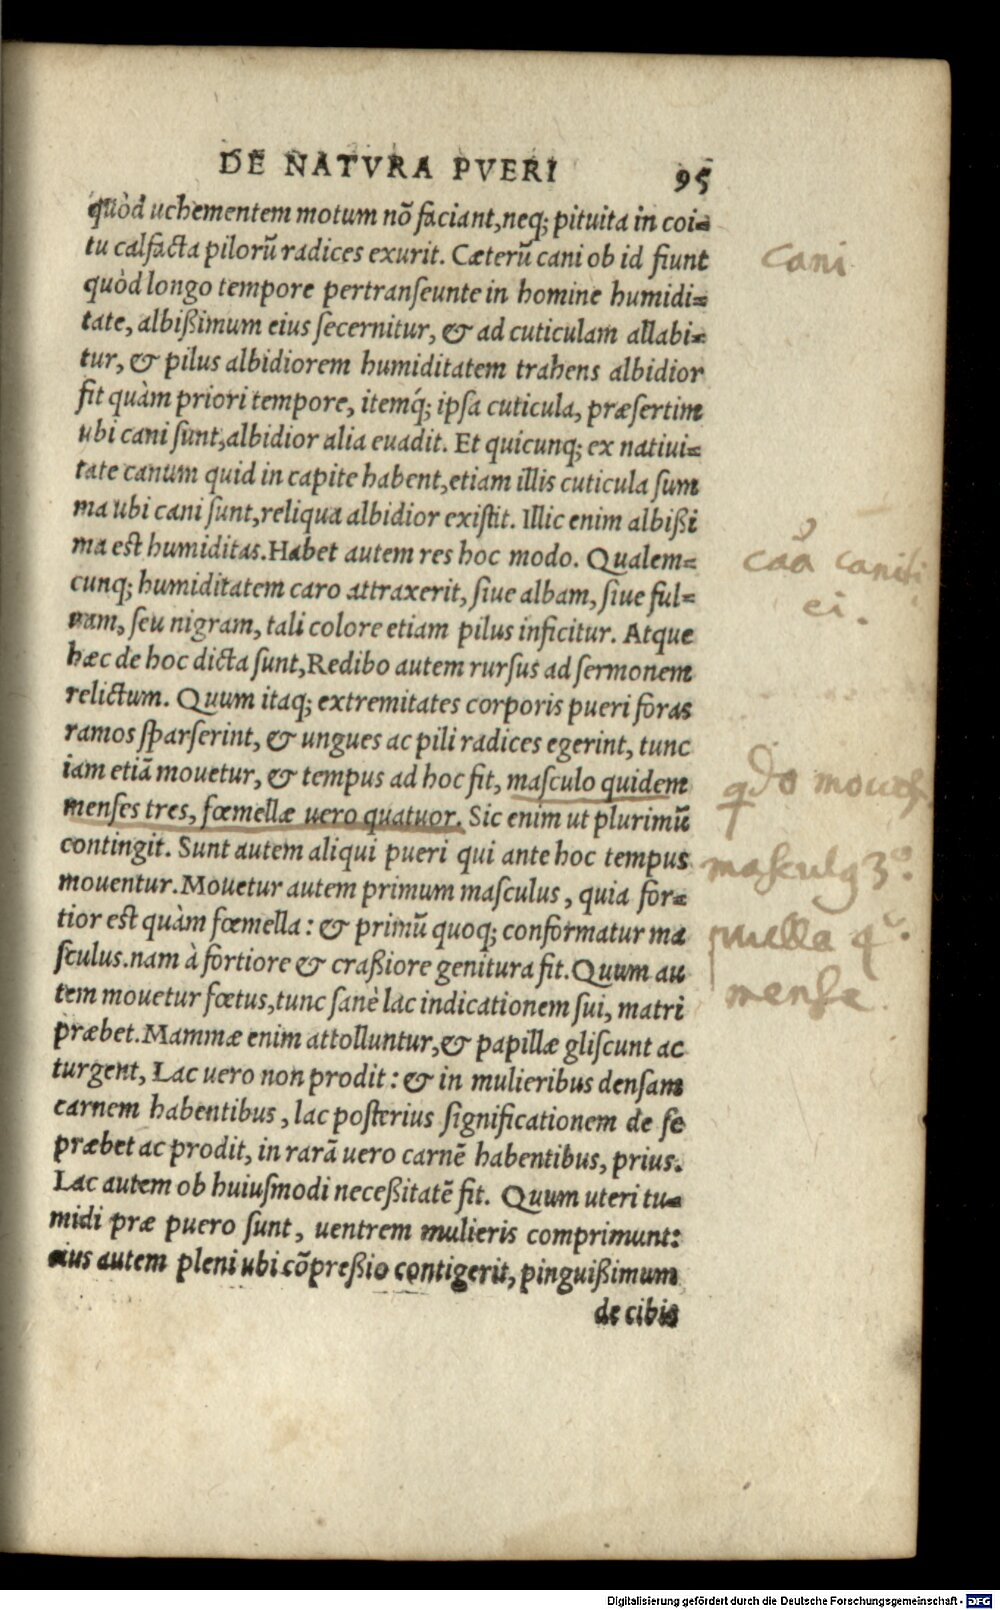 DE NATVRA PVERI 95
quòd uehementem motum nõ faciant, neq; pituita in coi=
tu calfacta pilorũ radices exurit. Cæterũ cani ob id fiunt
cani
quòd longo tempore pertranſeunte in homine humidi=
tate, albißimum eius ſecernitur, & ad cuticulam allabi=
tur, & pilus albidiorem humiditatem trahens albidior
fit quàm priori tempore, itemq́; ipſa cuticula, præſertim
ubi cani ſunt, albidior alia euadit. Et quicunq; ex natiui=
tate canum quid in capite habent, etiam illis cuticula ſum
ma ubi cani ſunt, reliqua albidior exiſtit. Illic enim albißi
ma est humiditas. Habet autem res hoc modo. Qualem=
caã caniti
cunq; humiditatem caro attraxerit, ſiue albam, ſiue ful=
ei.
uam, ſeu nigram, tali colore etiam pilus inficitur. Atque
hæc de hoc dicta ſunt, Redibo autem rurſus ad ſermonem
relictum. Quum itaq; extremitates corporis pueri foras
ramos ſparſerint, & ungues ac pili radices egerint, tunc
iam etiã mouetur, & tempus ad hoc fit, maſculo quidem
menſes tres, fœmellæ uero quatuor. Sic enim ut plurimũ
contingit. Sunt autem aliqui pueri qui ante hoc tempus
mouentur. Mouetur autem primum maſculus, quia for=
tior est quàm fœmella: & primũ quoq; conformatur ma
puella
ſculus. nam à fortiore & craßiore genitura fit. Quum au
tem mouetur fœtus, tunc ſanè lac indicationem ſui, matri
menſe
præbet. Mammæ enim attolluntur, & papillæ gliſcunt ac
turgent, Lac uero non prodit: & in mulieribus denſam
carnem habentibus, lac poſterius ſignificationem de ſe
præbet ac prodit, in rarã uero carnẽ habentibus, prius.
Lac autem ob huiuſmodi neceßitatẽ fit. Quum uteri tu=
midi præ puero ſunt, uentrem mulieris comprimunt:
eius autem pleni ubi cõpreßio contigerit, pinguißimum
de cibis
Digitalisierung gefördert durch die Deutsche Forschungsgemeinschaft - DFG